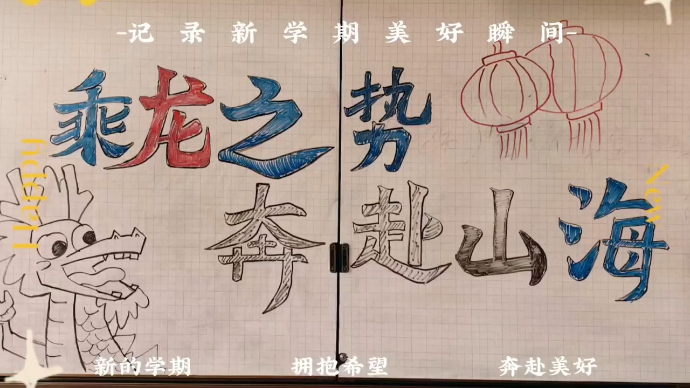 -记录新学期美好瞬间-
乘龙之势
奔赴山海
Happy
New
新的学期 拥抱希望 奔赴美好